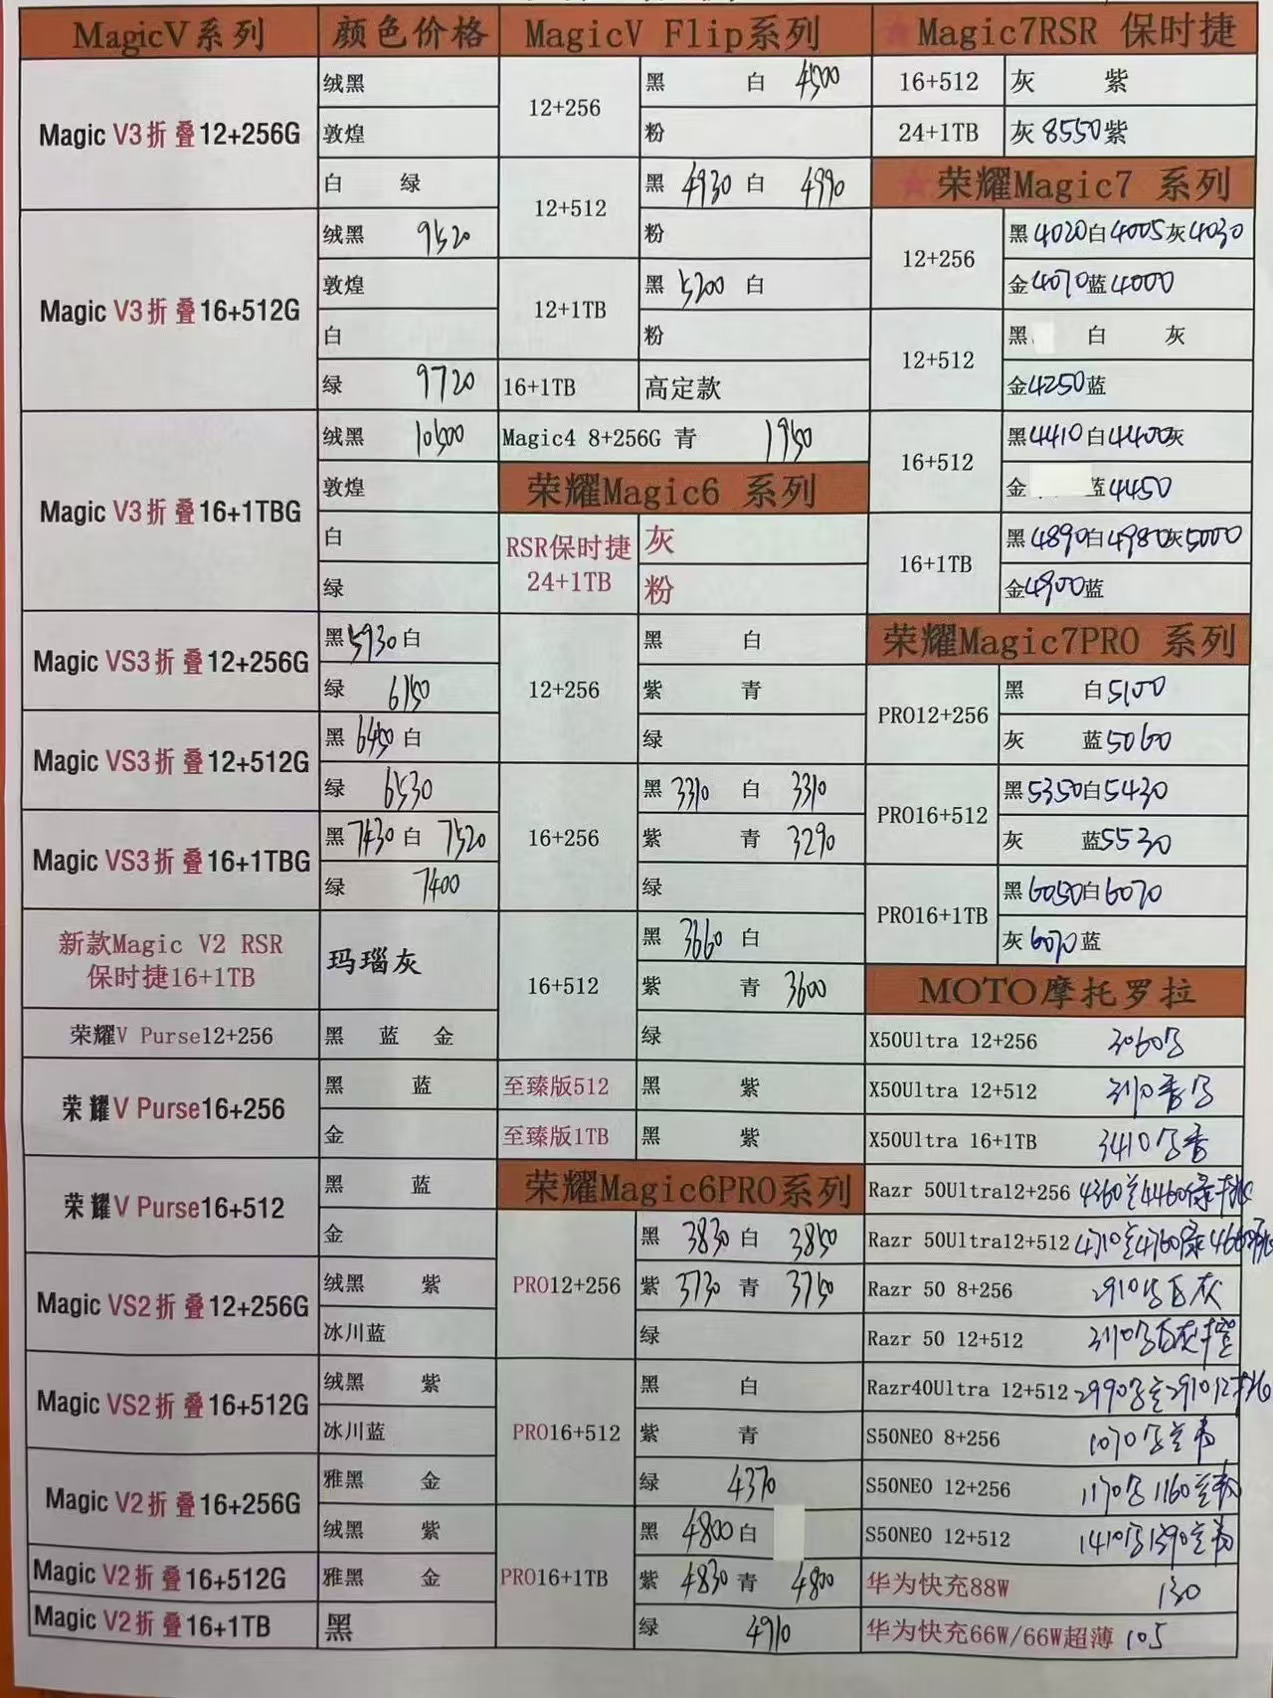 MagicV系列 颜色价格
Magic V3折叠12+256G
绒黑
敦煌
白 绿
Magic V3折叠16+512G
绒黑 9520
敦煌
白
绿 9720
Magic V3折叠16+1TBG
绒黑 10500
敦煌
白
绿
Magic VS3折叠12+256G
黑5930白
绿 6150
Magic VS3折叠12+512G
黑6450白
绿 6530
Magic VS3折叠16+1TBG
黑7430白 7520
绿 7400
新款Magic V2 RSR
保时捷16+1TB
玛瑙灰
荣耀V Purse12+256 黑 蓝 金
荣耀V Purse16+256
黑 蓝
金
荣耀V Purse16+512
黑 蓝
金
Magic VS2折叠12+256G
绒黑 紫
冰川蓝
Magic VS2折叠16+512G
绒黑 紫
冰川蓝
Magic V2折叠16+256G
雅黑 金
绒黑 紫
Magic V2折叠16+512G 雅黑 金
Magic V2折叠16+1TB 黑
MagicV Flip系列
12+256
黑 白 4500
粉
12+512
黑 4930 白 4990
粉
12+1TB
黑 5200 白
粉
16+1TB 高定款
Magic4 8+256G 青 1950
荣耀Magic6 系列
RSR保时捷
24+1TB
灰
粉
12+256
黑 白
紫 青
绿
16+256
黑 3310 白 3310
紫 青 3290
绿
16+512
黑 3660 白
紫 青 3600
绿
至臻版512 黑 紫
至臻版1TB 黑 紫
荣耀Magic6PRO系列
PRO12+256
黑 3830 白 3850
紫 3730 青 3750
绿
PRO16+512
黑 白
紫 青
绿 4370
PRO16+1TB
黑 4800白
紫 4830青 4800
绿 4910
★Magic7RSR 保时捷
16+512 灰 紫
24+1TB 灰 8550紫
★荣耀Magic7 系列
12+256
黑4020白4005灰4030
金4070蓝4000
12+512
黑 白 灰
金4250蓝
16+512
黑4410白4400灰
金 蓝4450
16+1TB
黑4890白4980灰5000
金4900蓝
荣耀Magic7PRO 系列
PRO12+256
黑 白5100
灰 蓝5060
PRO16+512
黑5350白5430
灰 蓝5530
PRO16+1TB
黑6050白6070
灰6070蓝
MOTO摩托罗拉
X50Ultra 12+256 3060
X50Ultra 12+512
X50Ultra 16+1TB 3410
Razr 50Ultra12+256 4360 4460
Razr 50Ultra12+512 4710 4760
Razr 50 8+256 2910 白灰
Razr 50 12+512 3110 白灰
Razr40Ultra 12+512 2990 2910
S50NEO 8+256 1070
S50NEO 12+256 1170 1160
S50NEO 12+512 1410 1390
华为快充88W 130
华为快充66W/66W超薄 105